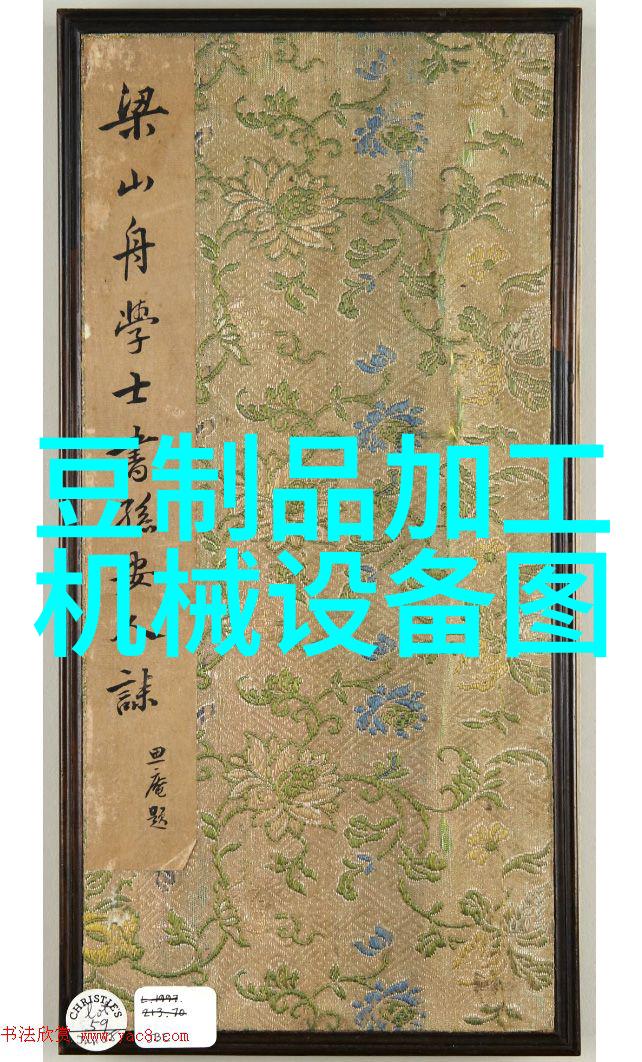 梁山舟學士書孫安人誄
庵題
豆制品加工
机械设备图
CHRISTIE'S
lot
59
L.1997.
213.70
书法欣赏 www.yac8.com